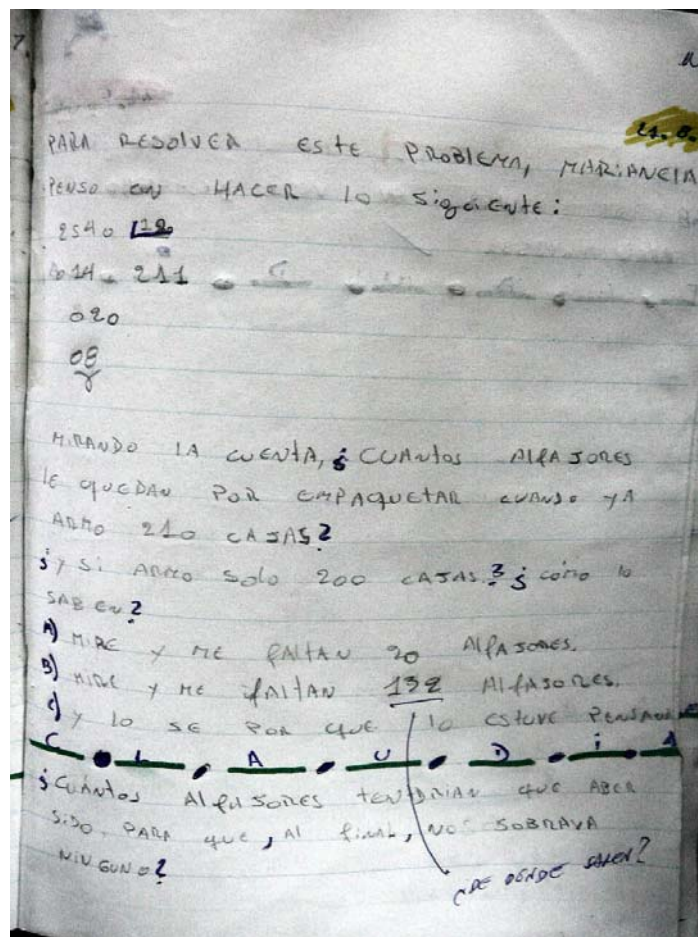 21.8.
PARA RESOLVER ESTE PROBLEMA, MARIANELA
PENSO EN HACER LO SIGUIENTE:
2540 12
014 211
020
08
MIRANDO LA CUENTA, ¿CUANTOS ALFAJORES
LE QUEDAN POR EMPAQUETAR CUANDO YA
ARMO 210 CAJAS?
¿Y SI ARMO SOLO 200 CAJAS? ¿COMO LO
SABEN?
A) MIRE Y ME FALTAN 20 ALFAJORES.
B) MIRE Y ME FALTAN 132 ALFAJORES.
C) Y LO SE POR QUE LO ESTUVE PENSANDO
C L A U D i A
¿CUÁNTOS ALFAJORES TENDRIAN QUE ABER
SIDO, PARA QUE, AL FINAL, NO SOBRAVA
NINGUNO?
¿DE DÓNDE SALEN?